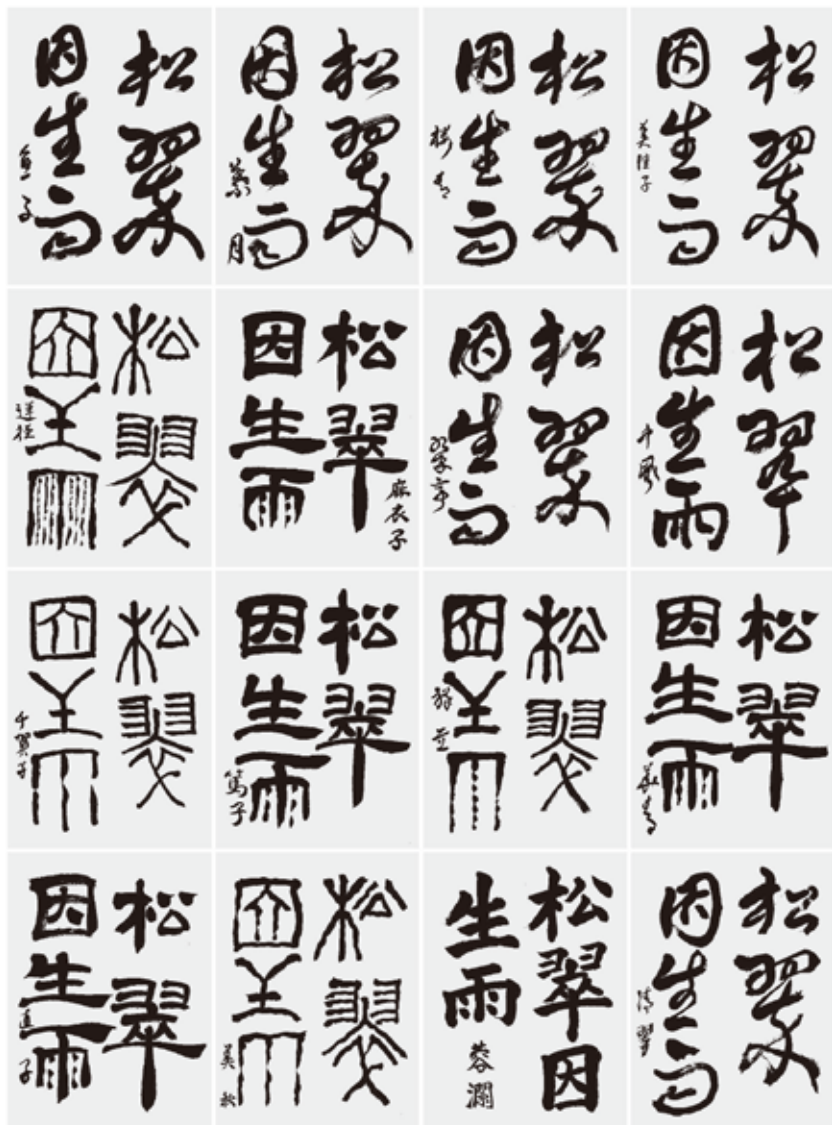 松翠
因生雨
松翠
因生雨
松翠
因生雨
松翠
因生雨
美佳子
松翠
因生雨
松翠
因生雨
麻衣子
松翠
因生雨
松翠
因生雨
千風
松翠
因生雨
千賀子
松翠
因生雨
篤子
松翠
因生雨
松翠
因生雨
松翠
因生雨
直子
松翠
因生雨
松翠因
生雨
蓉瀾
松翠
因生雨
清翠